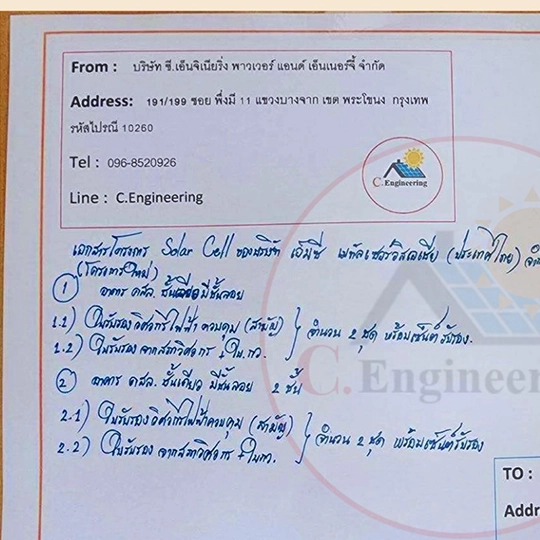 From : บริษัท ซี.เอ็นจิเนียริ่ง พาวเวอร์ แอนด์ เอ็นเนอร์จี้ จำกัด
Address: 191/199 ซอย พึ่งมี 11 แขวงบางจาก เขต พระโขนง กรุงเทพ
รหัสไปรณี 10260
Tel : 096-8520926
Line : C.Engineering
C.Engineering
เอกสารโครงการ Solar Cell ของบริษัท เจ้มีซี เมทัลเซอร์วิสเอเชีย (ประเทศไทย)
(โครงการใหม่)
① อาคาร คสล. ชั้นเดียว มีชั้นลอย
1.1) ใบรับรองวิศวกรไฟฟ้าควบคุม (สามัญ) } จำนวน 2 ชุด พร้อมเซ็นต์รับรอง.
1.2) ใบรับรองจากสภาวิศวกร + ใบ กว.
② อาคาร คสล. ชั้นเดียว มีชั้นลอย 2 ชั้น
2.1) ใบรับรองวิศวกรไฟฟ้าควบคุม (สามัญ) } จำนวน 2 ชุด พร้อมเซ็นต์รับรอง
2.2) ใบรับรองจากสภาวิศวกร + ใบกว.
C.Engineer
TO :
Addr